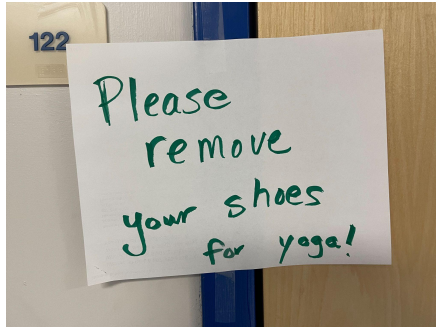 122
Please
remove
your shoes
for yoga!